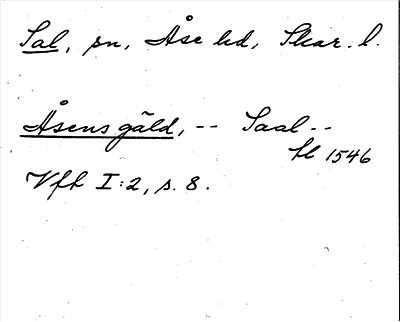 Sal, sn, Åse hd, Skar. l.
Åsens gäld, -- Saal --
fl 1546
Vfh I:2, s. 8.